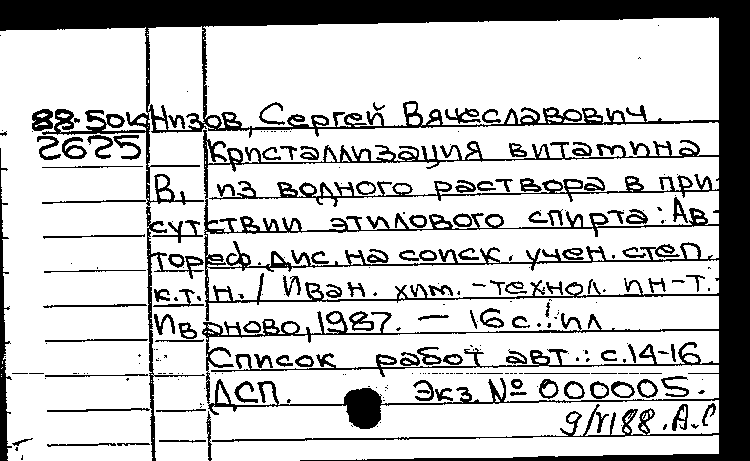 88-50к Низов, Сергей Вячеславович.
2625 Кристаллизация витамина
B₁ из водного раствора в при-
сутствии этилового спирта: Ав-
тореф. дис. на соиск. учен. степ.
к.т.н. / Иван. хим.-технол. ин-т.-
Иваново, 1987. — 16 с.: ил.
Список работ авт.: с. 14-16.
ДСП. Экз. № 000005.
9/VI88. А.С